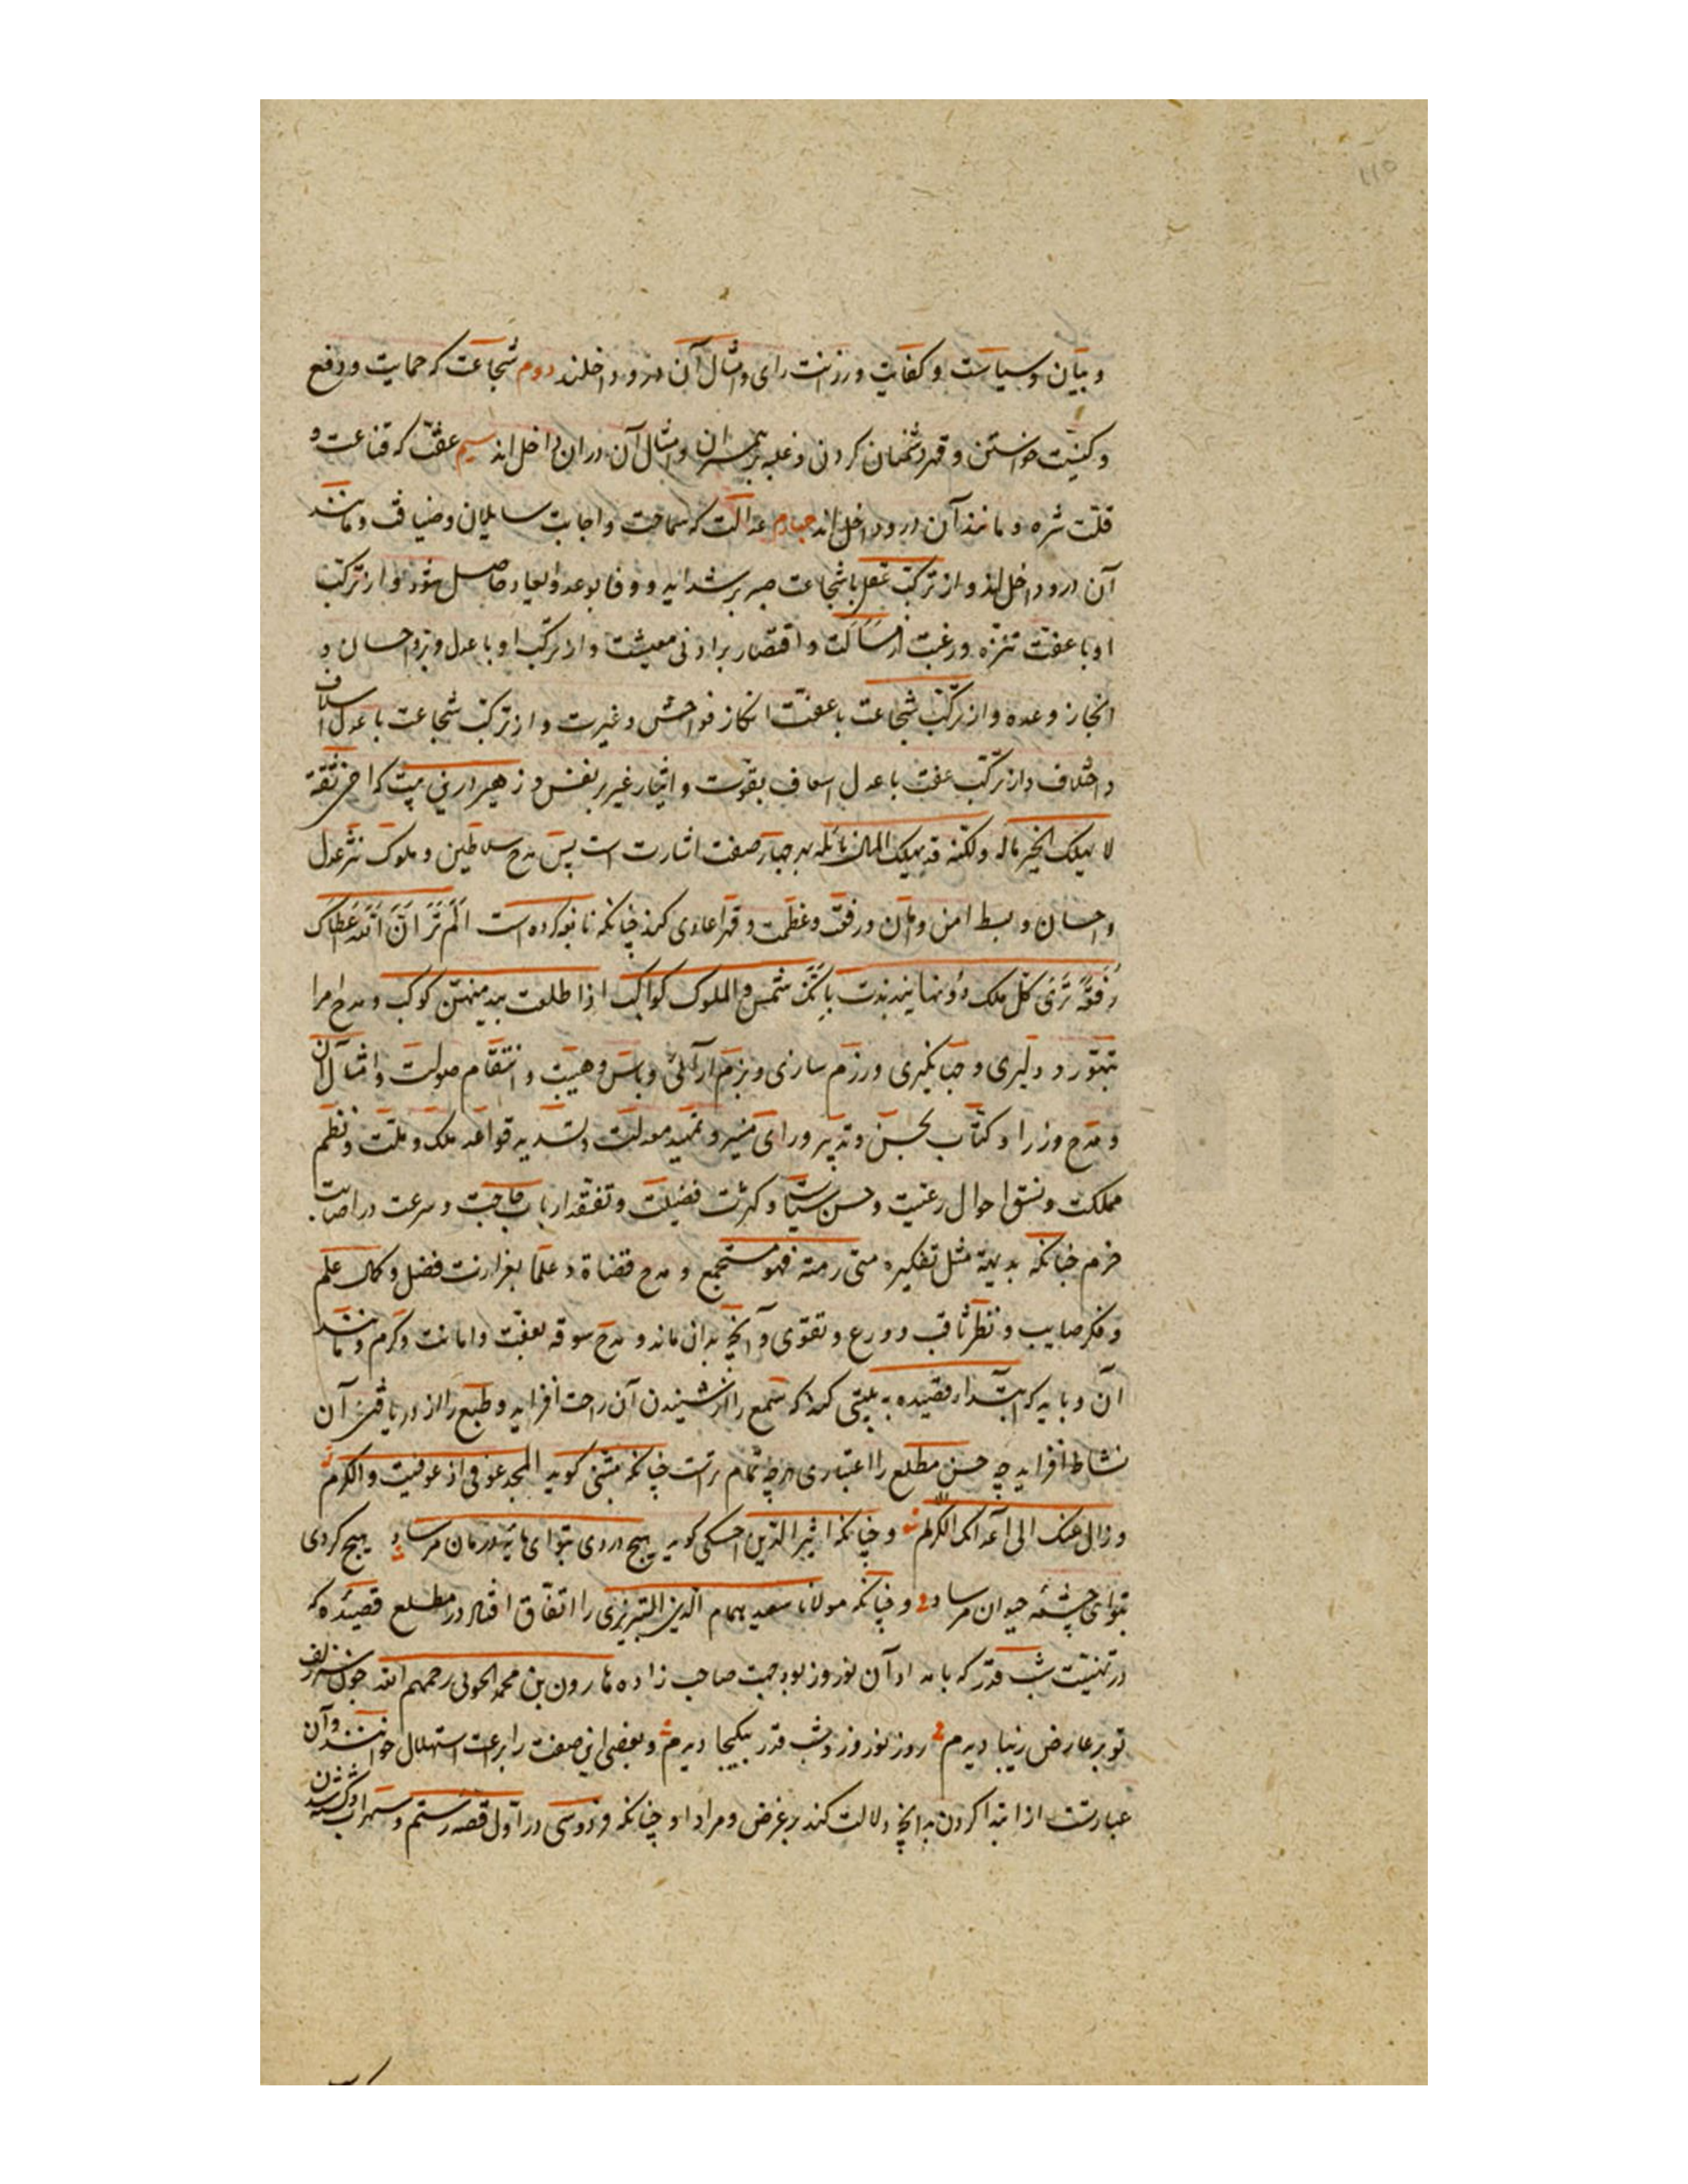 و بیان و سیاست و کفایت و رزانت رای و امثال آن درو داخلند دوم شجاعت که حمایت و دفع
و کینت خواستن و قهر دشمنان کردن و غلبه بر همسران و امثال آن دران داخل اند سیم عفّت که قناعت و
قلّت شره و مانند آن درو داخل اند چهارم عدالت که سماحت و اجابت سایلان و ضیافت و مانند
آن درو داخل اند و از ترکّب عقل با شجاعت صبر بر شداید و وفا بوعد و ایعاد حاصل شود و از ترکّب
او با عفّت تنزّه و رغبت از مساکت و اقتصار بر ادنی معیشت و از ترکّب او با عدل و برّ و احسان و
انجاز وعده و از ترکّب شجاعت با عفّت انکار فواحش و غیرت و از ترکّب شجاعت با عدل اسلاف
و اخلاف و از ترکّب عفت با عدل اسعاف بقوت و ایثار غیر بر نفس و زهیر درین بیت که اخی ثقة
لا یهلک الخمر ماله ولکنّه قد یهلک المال نائله بهر چهار صفت اشارت است پس مدح سلاطین و ملوک بنشر عدل
و احسان و بسط امن و امان و رفعت و عظمت و قهر اعادی کند چنانکه نابغه کرده است الم تر انّ الله اعطاک
رفعة تری کلّ ملک دونها یتذبذب بانّک شمس والملوک کواکب اذا طلعت لم یبد منهنّ کوکب و مدح امرا
بتهوّر و دلیری و جهانگیری و رزم سازی و بزم آرائی و باس و هیبت و انتقام صولت و امثال آن
و مدح وزرا و کتّاب بحسن و تدبیر و رای منیر و تمهید معدلت و تشدید قواعد ملک و ملّت و نظم
مملکت و نسق احوال رعیّت و حسن سیاست و کثرت فضیلت و تفقّد ارباب حاجت و سرعت در اصابت
حزم چنانکه بدیهته مثل تفکیره متی رمته فهو مستجمع و مدح قضاة و علما بغزارت فضل و کمال علم
و فکر صایب و نظر ثاقب و ورع و تقوی و آنچه بدان ماند و مدح سوقه بعفّت و امانت و کرم و مانند
آن و باید که ابتداء قصیده به بیتی کند که سمع را از شنیدن آن راحت افزاید و طبع را از دریافتن آن
نشاط افزاید چه حسن مطلع را اعتباری هرچه تمام ترست چنانکه متنبّی گوید المجد عوفی اذ عوفیت والکرم
وزال عنک الی اعدائک الالم و چنانکه اثیر الدین اخسکتی گوید هیچ دردی بتو ای مایه درمان مرساد هیچ گردی
بتو ای چشمه حیوان مرساد و چنانکه مولانا سعید همام الدین التبریزی را اتفاق افتاد در مطلع قصیده که
در تهنیت شب قدر که بامداد آن نوروز بود جهت صاحب زاده هارون بن محمد الجوینی رحمهم الله چون سر زلف
تو بر عارض زیبا دیدم روز نوروز و شب قدر بیکجا دیدم و بعضی این صفت را براعت استهلال خوانند و آن
عبارتست از ابتدا کردن بدانچه دلالت کند بر غرض و مراد او چنانکه فردوسی در اول قصه رستم و سهراب